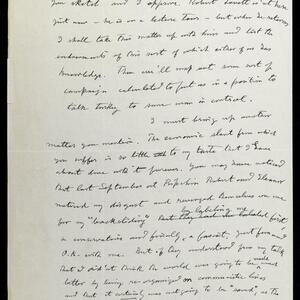 you sketch and I approve. Robert Lovett is not here
just now — he is on a lecture tour — but when he returns
I shall take this matter up with him and list the
endowments of this sort of which either of us has
knowledge. Then we'll map out some sort of
campaign calculated to put us in a position to
talk turkey to some man in control.
I must bring up another
matter you mention. The economic slant from which
you suffer is so little to my taste that I have
about done with it forever. You may have noticed
that last September at Robert and Eleanor
noticed my disgust and revenged themselves on me
for my "backsliding" by labeling me
a conservative and finally a fascist. Just
O.K. with me. But if they understood from my talk
that I didn't think the world was going to be made much
better by being re-organized on communistic lines
and that it certainly was not going to be saved, as the